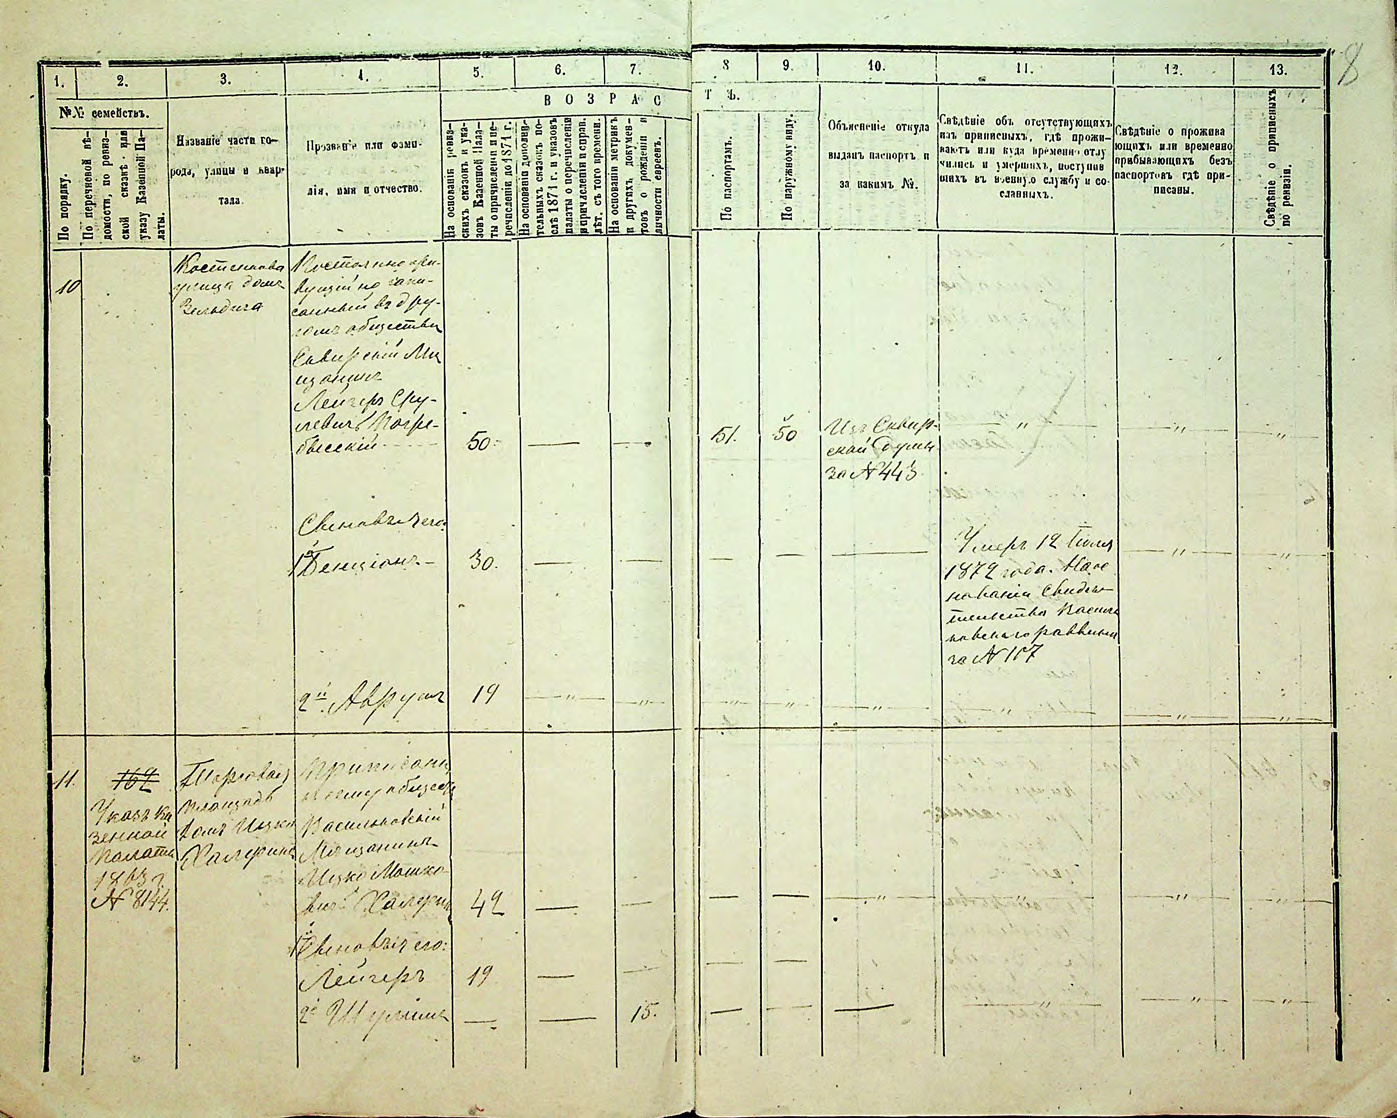 8
1.
2.
3.
4.
5.
6.
7.
8
9.
10.
11.
12.
13.
№№ семействъ.
В О З Р А С Т Ъ.
По порядку.
По перечневой вѣ-
домости, по ревиз-
ской сказкѣ или
указу Казенной Па-
латы.
Названіе части го-
рода, улицы и квар-
тала.
Прозваніе или фами-
лія, имя и отчество.
На основаніи ревиз-
скихъ сказокъ и ука-
зовъ Казенной Пала-
ты о причисленіи и пе-
речисленіи до 1871 г.
На основаніи дополни-
тельныхъ сказокъ по-
слѣ 1871 г. и указовъ
палаты о перечисленіи
и причисленіи и справ.
лѣт. съ того времени.
На основаніи метрикъ
и другихъ докумен-
товъ о рожденіи и
личности евреевъ.
По паспортамъ.
По наружному виду.
Объясненіе откуда
выданъ паспортъ и
за какимъ №.
Свѣдѣніе объ отсутствующихъ
изъ приписныхъ, гдѣ прожи-
ваютъ или куда временно отлу
чились и умершихъ, поступив
шихъ въ военную службу и со-
сланныхъ.
Свѣдѣніе о прожива
ющихъ или временно
прибывающихъ безъ
паспортовъ гдѣ при-
писаны.
Свѣдѣніе о приписныхъ
по ревизіи.
10
Костельная
улица домъ
Зельдича
Постоянно про-
живущій но запи-
санный въ дру-
гомъ обществѣ
Сквирскій Мѣ
щанинъ
Лейзеръ Сру-
левичъ Погре-
быскій
50
51.
50
Изъ Сквир-
ской Думы
за № 443
Сыновья его:
1й Бенціонъ
30.
Умеръ 12 Іюля
1872 года. На ос
нованіи Свидѣ-
тельства Василь
ковскаго раввина
за № 117
2й Аврумъ
19
11.
162
Указъ Ка
зенной
Палаты
1863 г.
№ 8144.
Торговая
Площадь
домъ Ицка
Халерина
Приписаны
къ сему обществу
Васильковскій
Мѣщанинъ
Ицко Мошко-
вичъ
49
1й Сыновья его:
Лейзеръ
19
2й Шулимъ
15.